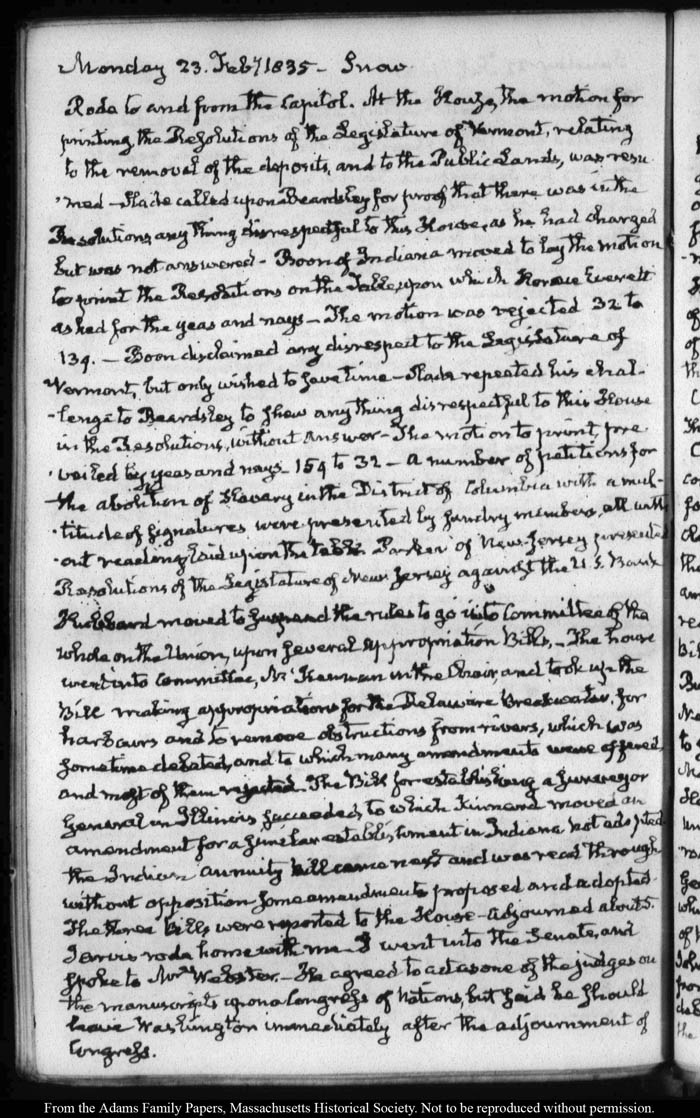 Monday 23. Feby 1835 - Snow.
Rode to and from the Capitol. At the House, the motion for
printing the Resolutions of the Legislature of Vermont, relating
to the removal of the deposits, and to the Public Lands, was resu
-med - Slade called upon Beardsley for proof that there was in the
Resolutions any thing disrespectful to this House, as he had charged
but was not answered - Boon of Indiana moved to lay the motion
to print the Resolutions on the Table, upon which Horace Everett
asked for the yeas and nays - The motion was rejected 32 to
134. - Boon disclaimed any disrespect to the Legislature of
Vermont, but only wished to save time - Slade repeated his chal-
-lenge to Beardsley to shew any thing disrespectful to this House
in the Resolutions, without answer - The motion to print, pre
-vailed by yeas and nays - 154 to 32 - A number of petitions for
the abolition of Slavery in the District of Columbia with a mul-
-titude of signatures were presented by sundry members, all with
-out reading laid upon the table. Parker of New Jersey presented
Resolutions of the Legislature of New Jersey against the U.S. Bank
Hubbard moved to suspend the rules to go into Committee of the
whole on the Union, upon several appropriation Bills, - The house
went into Committee, Mr in the Chair, and took up the
Bill making appropriations for the Delaware breakwater, for
harbours and to remove obstructions from rivers, which was
sometime debated, and to which many amendments were offered,
and most of them rejected. The Bill for establishing a Surveyor
General in Illinois succeeded, to which Kinnard moved an
amendment for a similar establishment in Indiana not adopted
the Indian annuity bill came next and was read through
without opposition some amendments proposed and adopted.
The three bills were reported to the House - adjourned about 5.
Jarvis rode home with me. I went into the Senate, and
spoke to Mr Webster. - He agreed to act as one of the judges on
the manuscripts upon a Congress of Nations, but said he should
leave Washington immediately after the adjournment of
Congress.
From the Adams Family Papers, Massachusetts Historical Society. Not to be reproduced without permission.